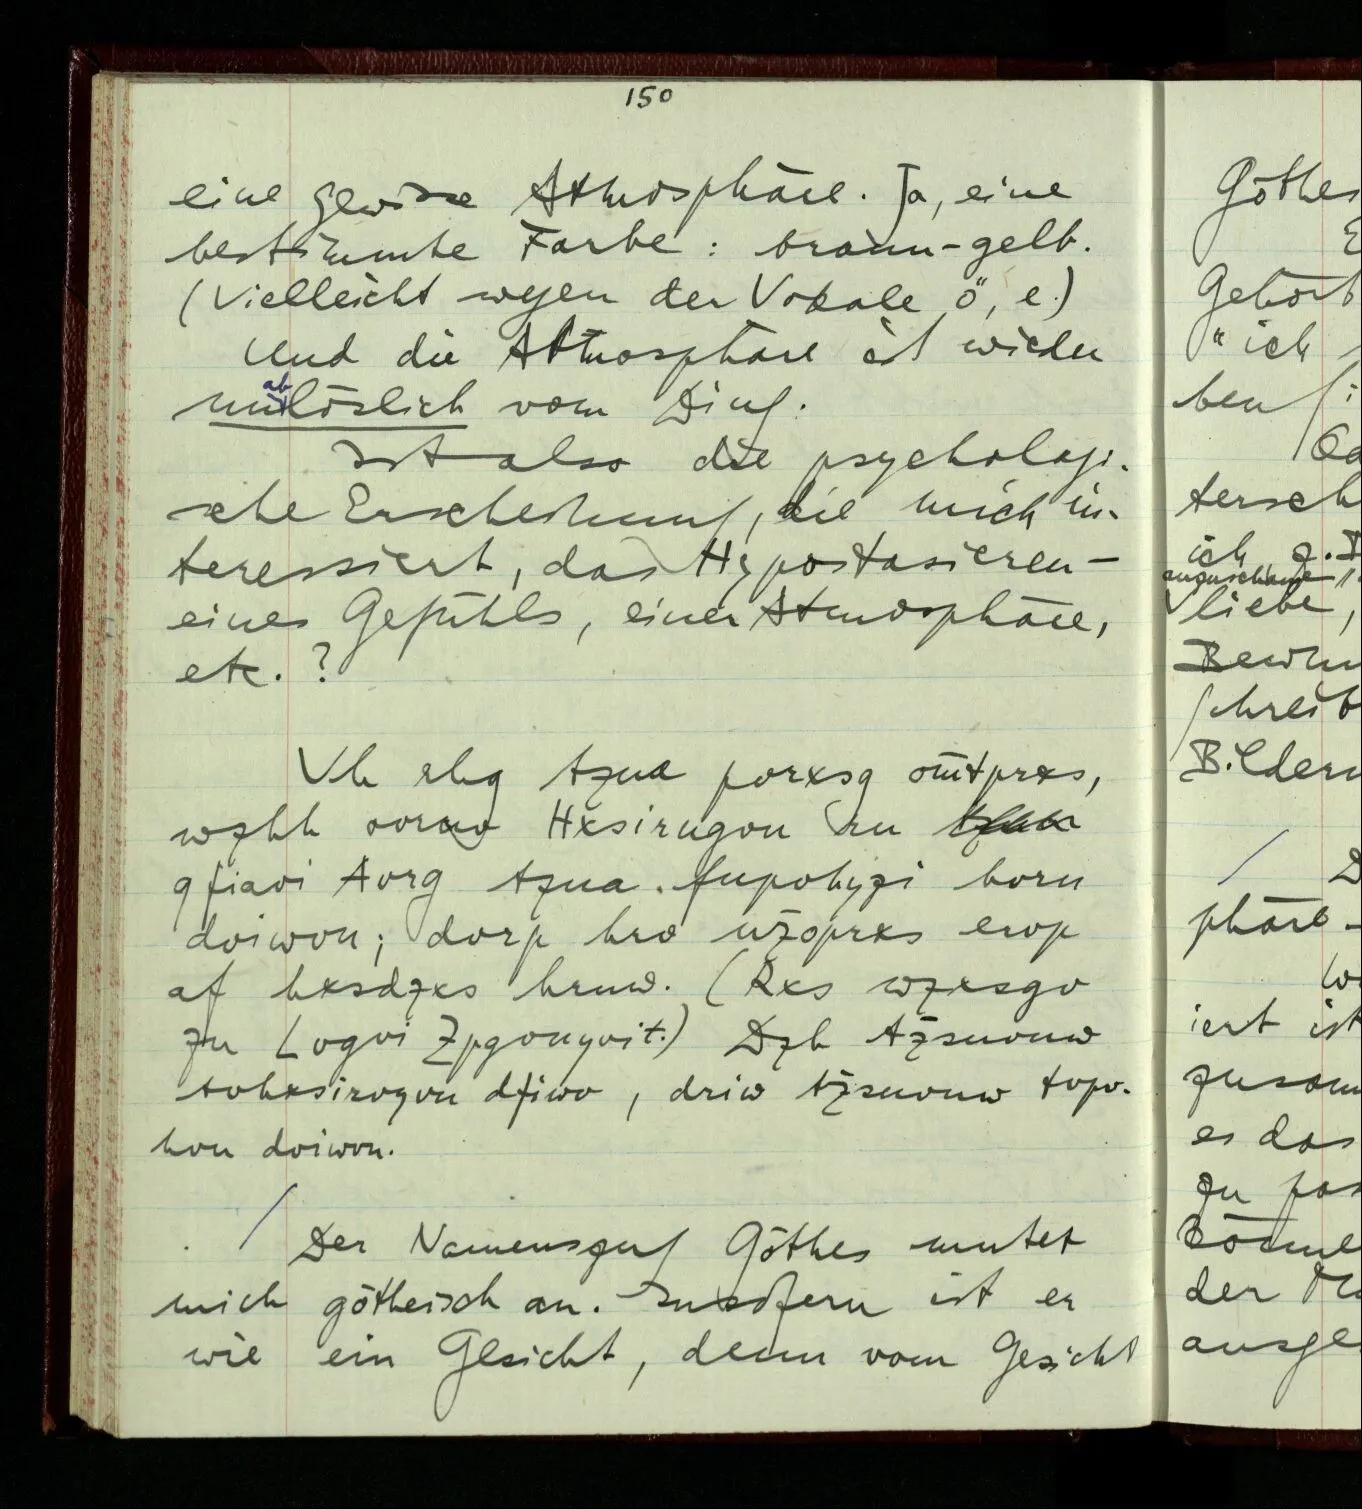 150
eine gewisse Atmosphäre. Ja, eine
bestimmte Farbe: braun-gelb.
(Vielleicht wegen der Vokale ö, e.)
Und die Atmosphäre ist wieder
unablöslich vom Ding.
Ist also die psychologi-
sche Erscheinung, die mich in-
teressiert, das Hypostasieren
eines Gefühls, einer Atmosphäre,
etc. ?
Vh rhg tzua porxsg
wzhh Hxsirugou ru
qfiaoi Aorg tzua fupohyzi horu
doiwou; dorp hro erop
af hxsdzxs hruw. (Rxs wzxsgo
zu Logoi Zpgouyoit.) Dzh tz̈suouw
tohxsirogou dfiwo, driw tz̈suouw topo-
hou doiwou.
Der Namenszug Göthes mutet
mich götheisch an. Insofern ist er
wie ein Gesicht, denn vom Gesicht
Göthes
Gehört
"ich
ben
tersch
ich z.
liebe,
schreib
Bildern
phäre -
iert ist
zusam
es das
zu pas
der
ausge